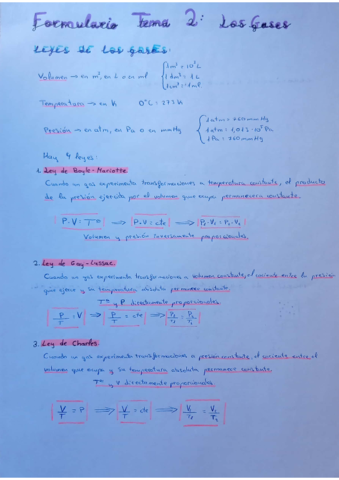 Formulario Tema 2: Los Gases
Leyes de los gases.
Volumen → en m³, en L o en ml { 1m³ = 10³L
1dm³ = 1L
1cm³ = 1ml
Temperatura → en K 0°C = 273 K
Presión → en atm, en Pa o en mmHg { 1 atm = 760 mmHg
1 atm = 1,013 · 10⁵ Pa
1 Pa = 760 mmHg
Hay 4 leyes:
1. Ley de Boyle-Mariotte
Cuando un gas experimenta transformaciones a temperatura constante, el producto
de la presión ejercida por el volumen que ocupa permanecerá constante.
P·V = Tª ⟹ P·V = cte ⟹ P₁·V₁ = P₂·V₂
Volumen y presión inversamente proporcionales.
2. Ley de Gay-Lussac
Cuando un gas experimenta transformaciones a volumen constante, el cociente entre la presión
que ejerce y su temperatura absoluta permanece constante.
Tª y P directamente proporcionales.
P/T = V ⟹ P/T = cte ⟹ P₁/T₁ = P₂/T₂
3. Ley de Charles
Cuando un gas experimenta transformaciones a presión constante, el cociente entre el
volumen que ocupa y su temperatura absoluta permanece constante.
Tª y V directamente proporcionales.
V/T = P ⟹ V/T = cte ⟹ V₁/T₁ = V₂/T₂